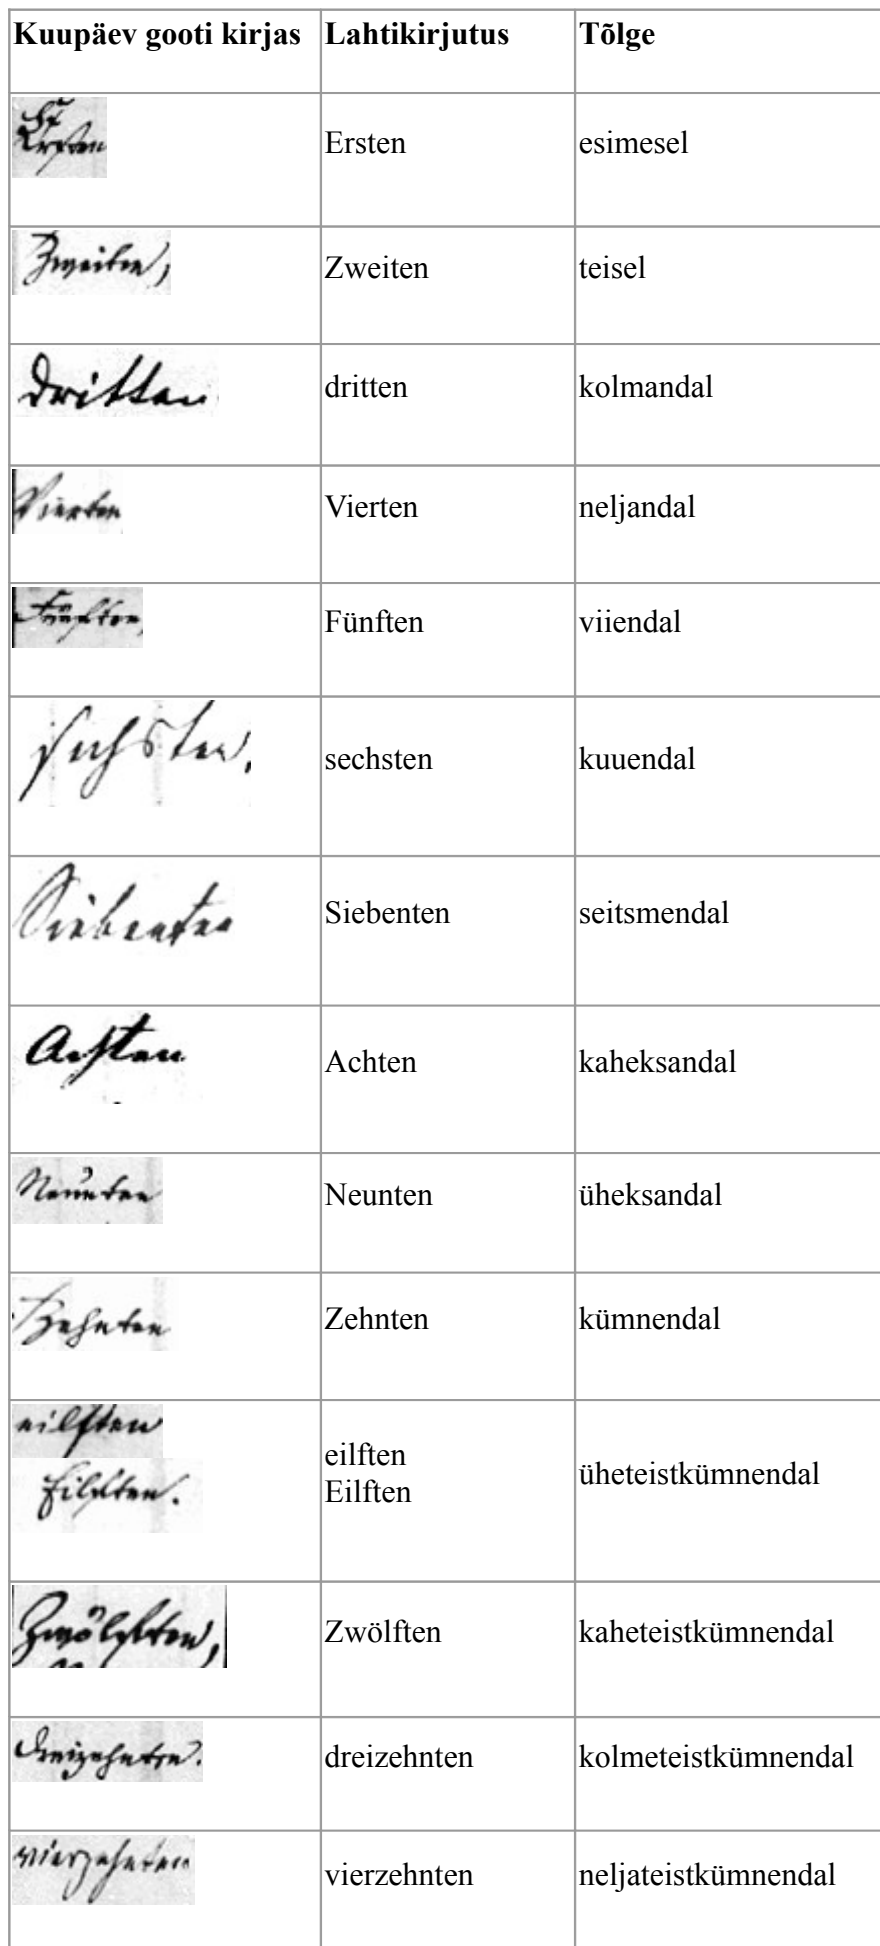 Kuupäev gooti kirjas Lahtikirjutus Tõlge
Ersten Ersten esimesel
Zweiten, Zweiten teisel
dritten dritten kolmandal
Vierten Vierten neljandal
Fünften, Fünften viiendal
sechsten, sechsten kuuendal
Siebenten Siebenten seitsmendal
Achten Achten kaheksandal
Neunten Neunten üheksandal
Zehnten Zehnten kümnendal
eilften
Eilften.
eilften
Eilften
üheteistkümnendal
Zwölften, Zwölften kaheteistkümnendal
dreizehnten. dreizehnten kolmeteistkümnendal
vierzehnten vierzehnten neljateistkümnendal